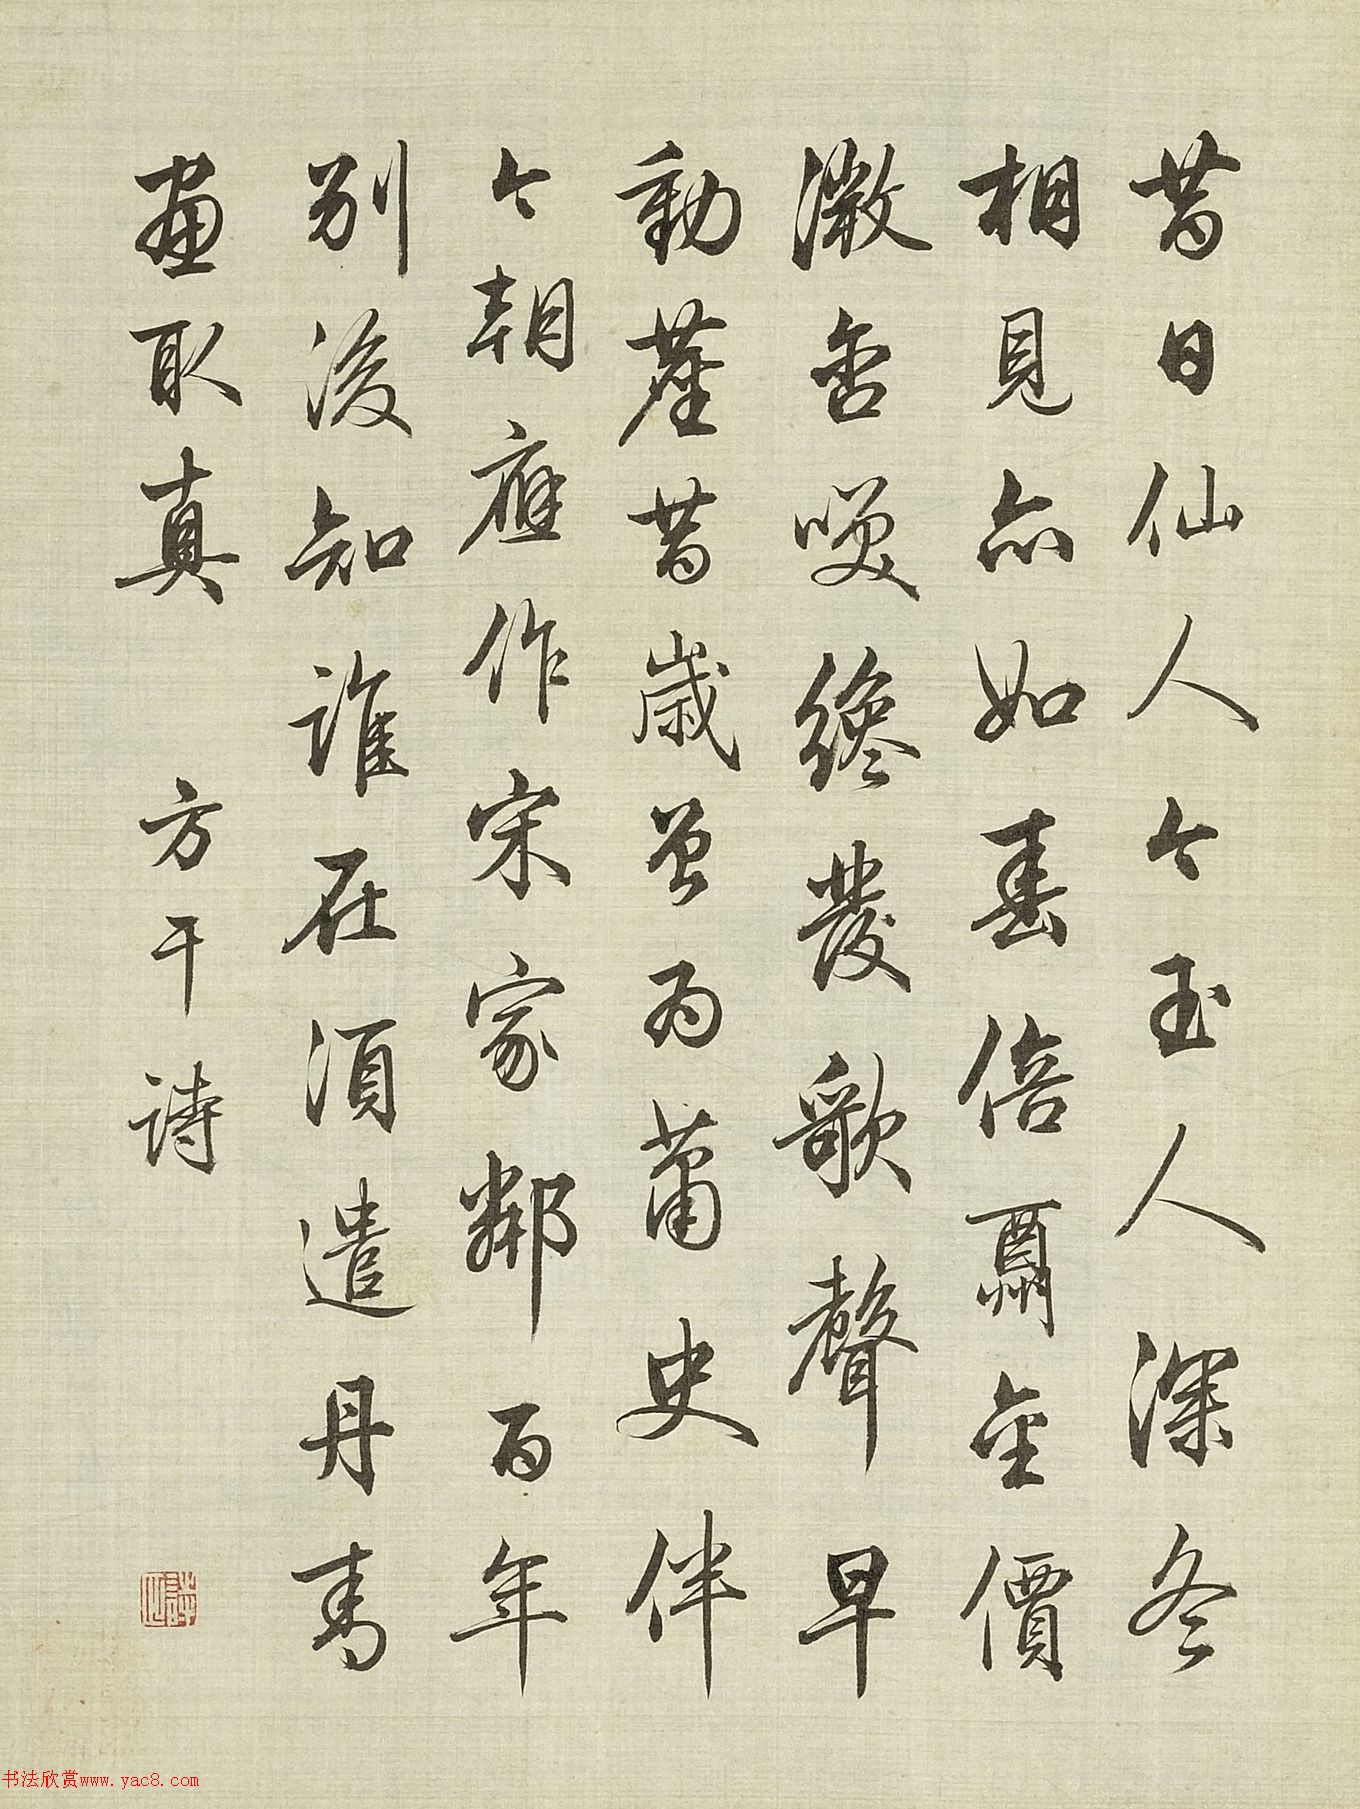 昔日仙人今玉人深冬
相見亦如春倍酬金價
微含笑纔發歌聲早
動塵昔歲曾為蕭史伴
今朝應作宋家鄰百年
別後知誰在須遣丹青
畫取真 方干詩
书法欣赏www.yac8.com